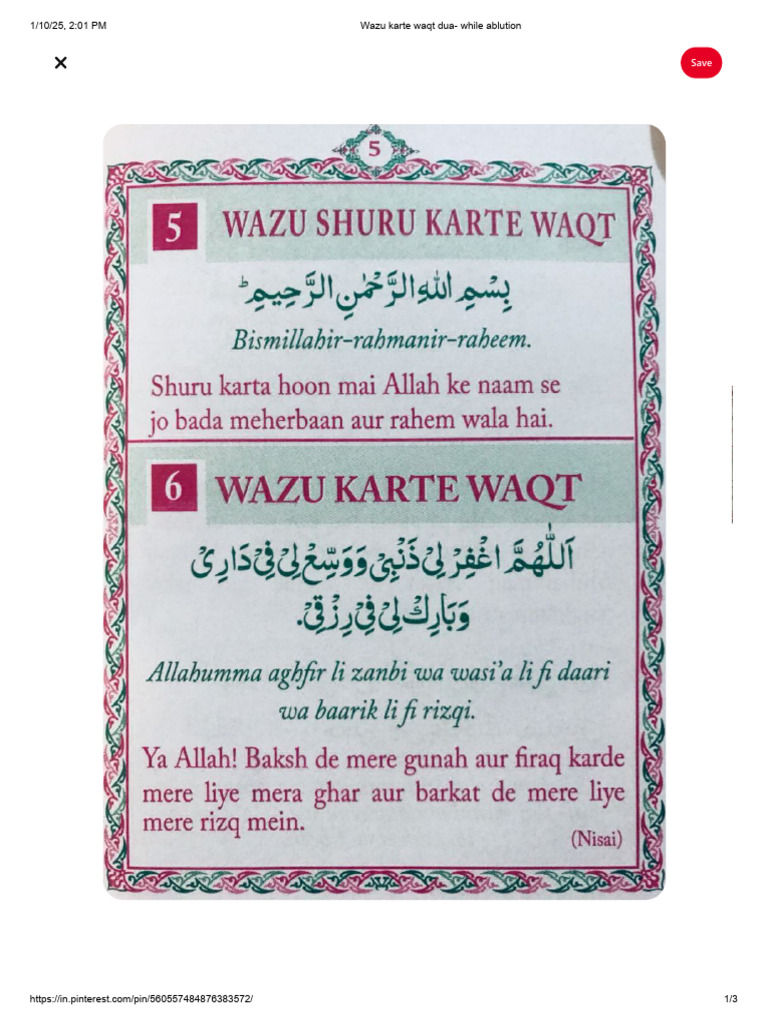 1/10/25, 2:01 PM
Wazu karte waqt dua- while ablution
Save
5
5 WAZU SHURU KARTE WAQT
بِسْمِ اللهِ الرَّحْمٰنِ الرَّحِيمِ ؕ
Bismillahir-rahmanir-raheem.
Shuru karta hoon mai Allah ke naam se
jo bada meherbaan aur rahem wala hai.
6 WAZU KARTE WAQT
اَللّٰهُمَّ اغْفِرْ لِيْ ذَنْبِيْ وَوَسِّعْ لِيْ فِيْ دَارِيْ
وَبَارِكْ لِيْ فِيْ رِزْقِيْ.
Allahumma aghfir li zanbi wa wasi'a li fi daari
wa baarik li fi rizqi.
Ya Allah! Baksh de mere gunah aur firaq karde
mere liye mera ghar aur barkat de mere liye
mere rizq mein.
(Nisai)
https://in.pinterest.com/pin/560557484876383572/
1/3